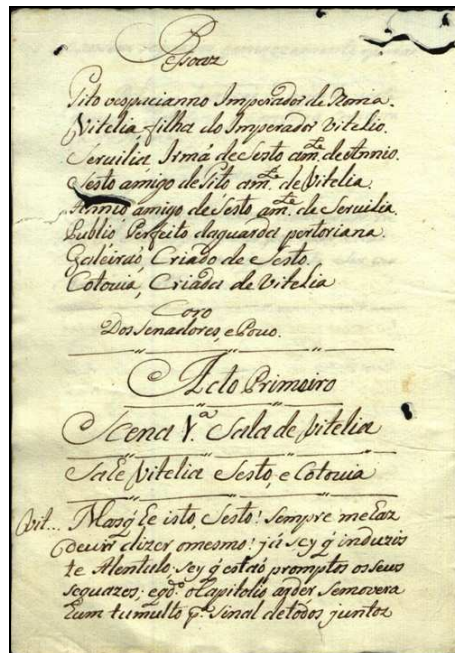 Pessoaz
Tito vespacianno Imperador de Roma.
Vitelia filha do Imperador Vitelio.
Servilia Irmã de Sesto am.te de Annio.
Sesto amigo de Tito am.te de Vitelia.
Annio amigo de Sesto am.te de Servilia.
Publio Perfeito daguarda pertoriana.
Galeiraõ Criado de Sesto.
Cotovia, Criada de Vitelia
Coro
Dos Senadores, e Povo.
Acto Primeiro
Scena 1.ª Sala de Vitelia
Sáe Vitelia Sesto, e Cotovia
Vit... Mas q̃ he isto, Sesto! sempre me has
de vir dizer o mesmo! já sey q̃ induzis
te Alentulo: sey q̃ estaõ promptos os seus
sequazes; e q.do o Capitolio arder se movera
hum tumulto p.ª sinal de todos juntos